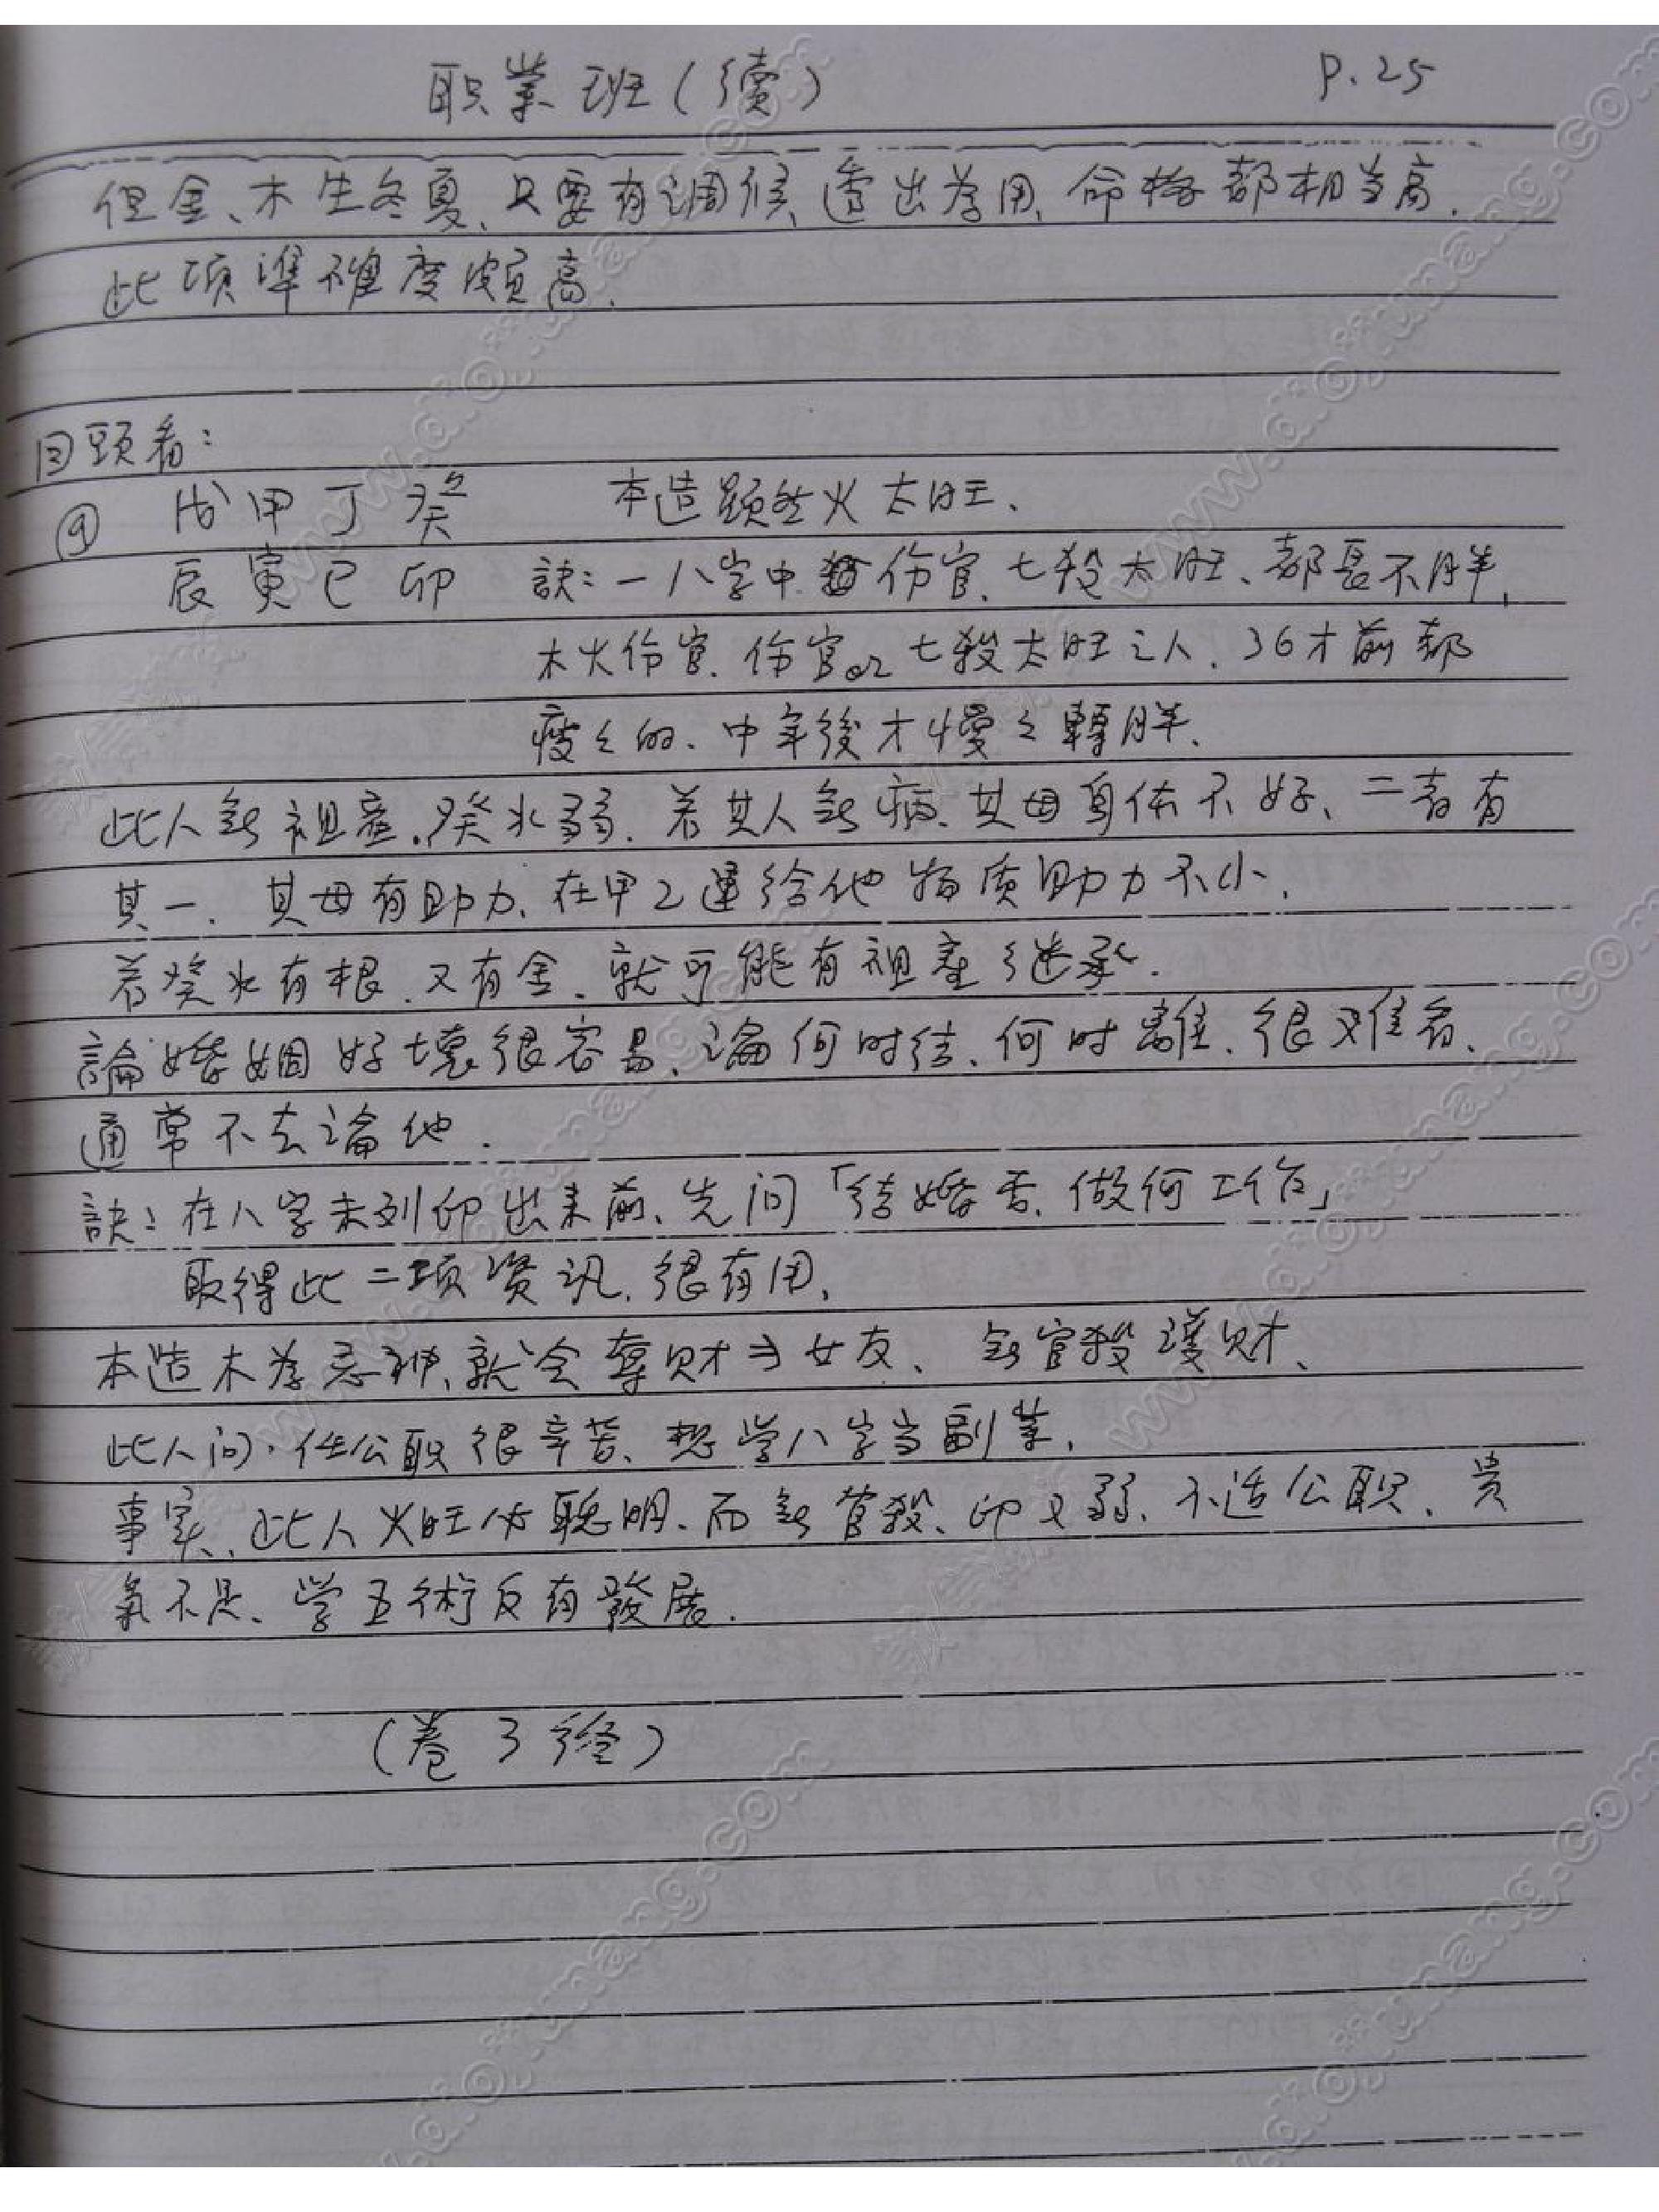 职業班(續) P.25
但金、木生冬夏、只要有调候、透出為用、命格都相当高.
此项準確度頗高.
回頭看:
⑨ 戊甲丁癸 本造顯然火太旺、
辰寅巳卯 訣:一八字中 伤官、七殺太旺、都長不胖,
木火伤官.伤官or七殺太旺之人、36才前都
瘦々的、中年後才慢々轉胖、
此人無祖產.癸水弱.若其人無病、其母身体不好、二者有
其一.其母有助力、在甲乙運給他物质助力不小.
若癸水有根.又有金、就可能有祖產継承.
論婚姻好壞很容易、論何时结、何时離、很难看、
通常不去論他.
訣:在八字未列印出来前、先问「结婚否、做何工作」
取得此二项资讯、很有用、
本造木為忌神、就会奪财为女友、無官殺護财、
此人问、任公职很辛苦、想学八字当副業、
事实、此人火旺 聪明、而無官殺、印又弱、不适公职、贵
氣不足、学五術反有發展.
(卷3終)